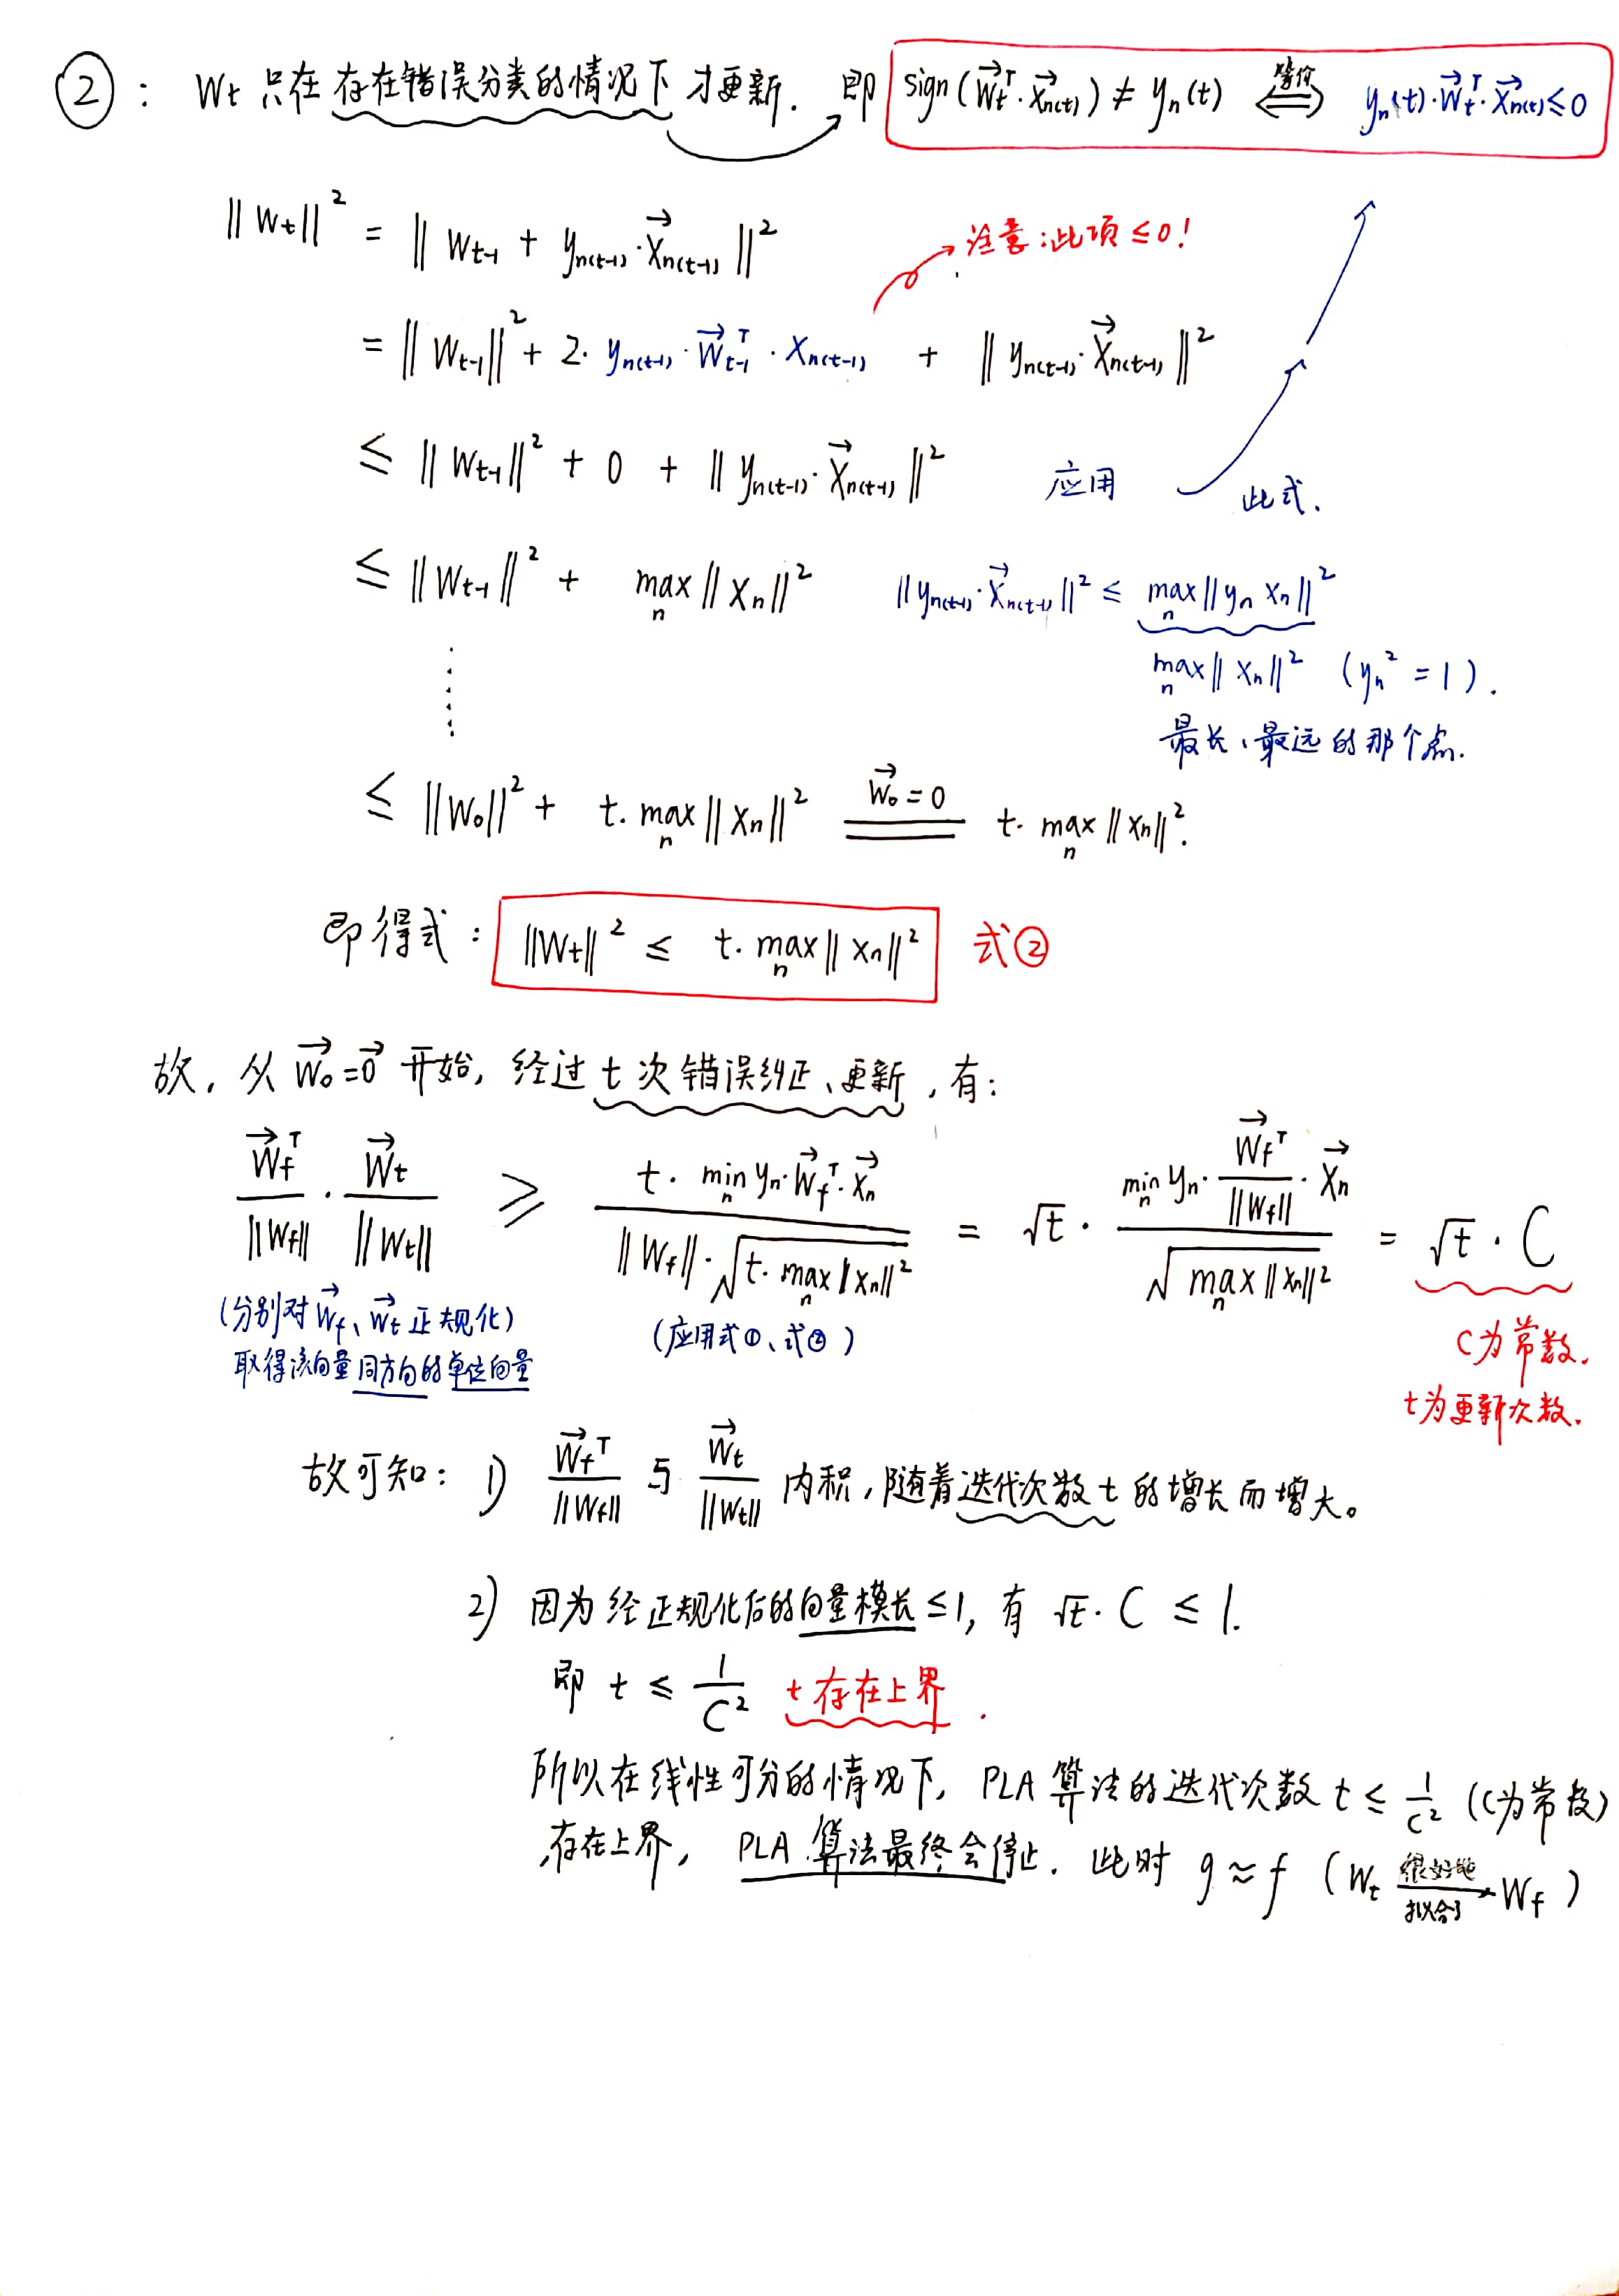 ②： Wt 只在存在错误分类的情况下才更新. 即 sign(W⃗t^T·X⃗n(t)) ≠ yn(t) ⟺(等价) yn(t)·W⃗t^T·X⃗n(t) ≤ 0
‖Wt‖² = ‖Wt-1 + yn(t-1)·X⃗n(t-1)‖²
注意:此项 ≤ 0!
= ‖Wt-1‖² + 2·yn(t-1)·W⃗t-1^T·Xn(t-1) + ‖yn(t-1)·X⃗n(t-1)‖²
≤ ‖Wt-1‖² + 0 + ‖yn(t-1)·X⃗n(t-1)‖² 应用 此式.
≤ ‖Wt-1‖² + max_n ‖Xn‖² ‖yn(t-1)·X⃗n(t-1)‖² ≤ max_n ‖yn Xn‖²
max_n ‖Xn‖² (yn² = 1).
最长、最远的那个点.
≤ ‖W0‖² + t·max_n ‖Xn‖² =(W⃗0=0)= t·max_n ‖Xn‖².
即得式: ‖Wt‖² ≤ t·max_n ‖Xn‖² 式②
故, 从 W⃗0=0⃗ 开始, 经过 t 次错误纠正、更新, 有:
W⃗f^T/‖Wf‖ · W⃗t/‖Wt‖ ≥ (t·min_n yn·W⃗f^T·X⃗n)/(‖Wf‖·√(t·max_n ‖Xn‖²)) = √t · (min_n yn·W⃗f^T/‖Wf‖·X⃗n)/√(max_n ‖Xn‖²) = √t·C
(分别对 W⃗f、W⃗t 正规化)
取得该向量同方向的单位向量
(应用式①、式②)
C为常数.
t为更新次数.
故可知: 1) W⃗f^T/‖Wf‖ 与 W⃗t/‖Wt‖ 内积, 随着迭代次数 t 的增长而增大。
2) 因为经正规化后的向量模长 ≤ 1, 有 √t·C ≤ 1.
即 t ≤ 1/C² t存在上界.
所以在线性可分的情况下, PLA 算法的迭代次数 t ≤ 1/C² (C为常数)
存在上界, PLA 算法最终会停止. 此时 g ≈ f (Wt 很好地拟合了→ Wf)